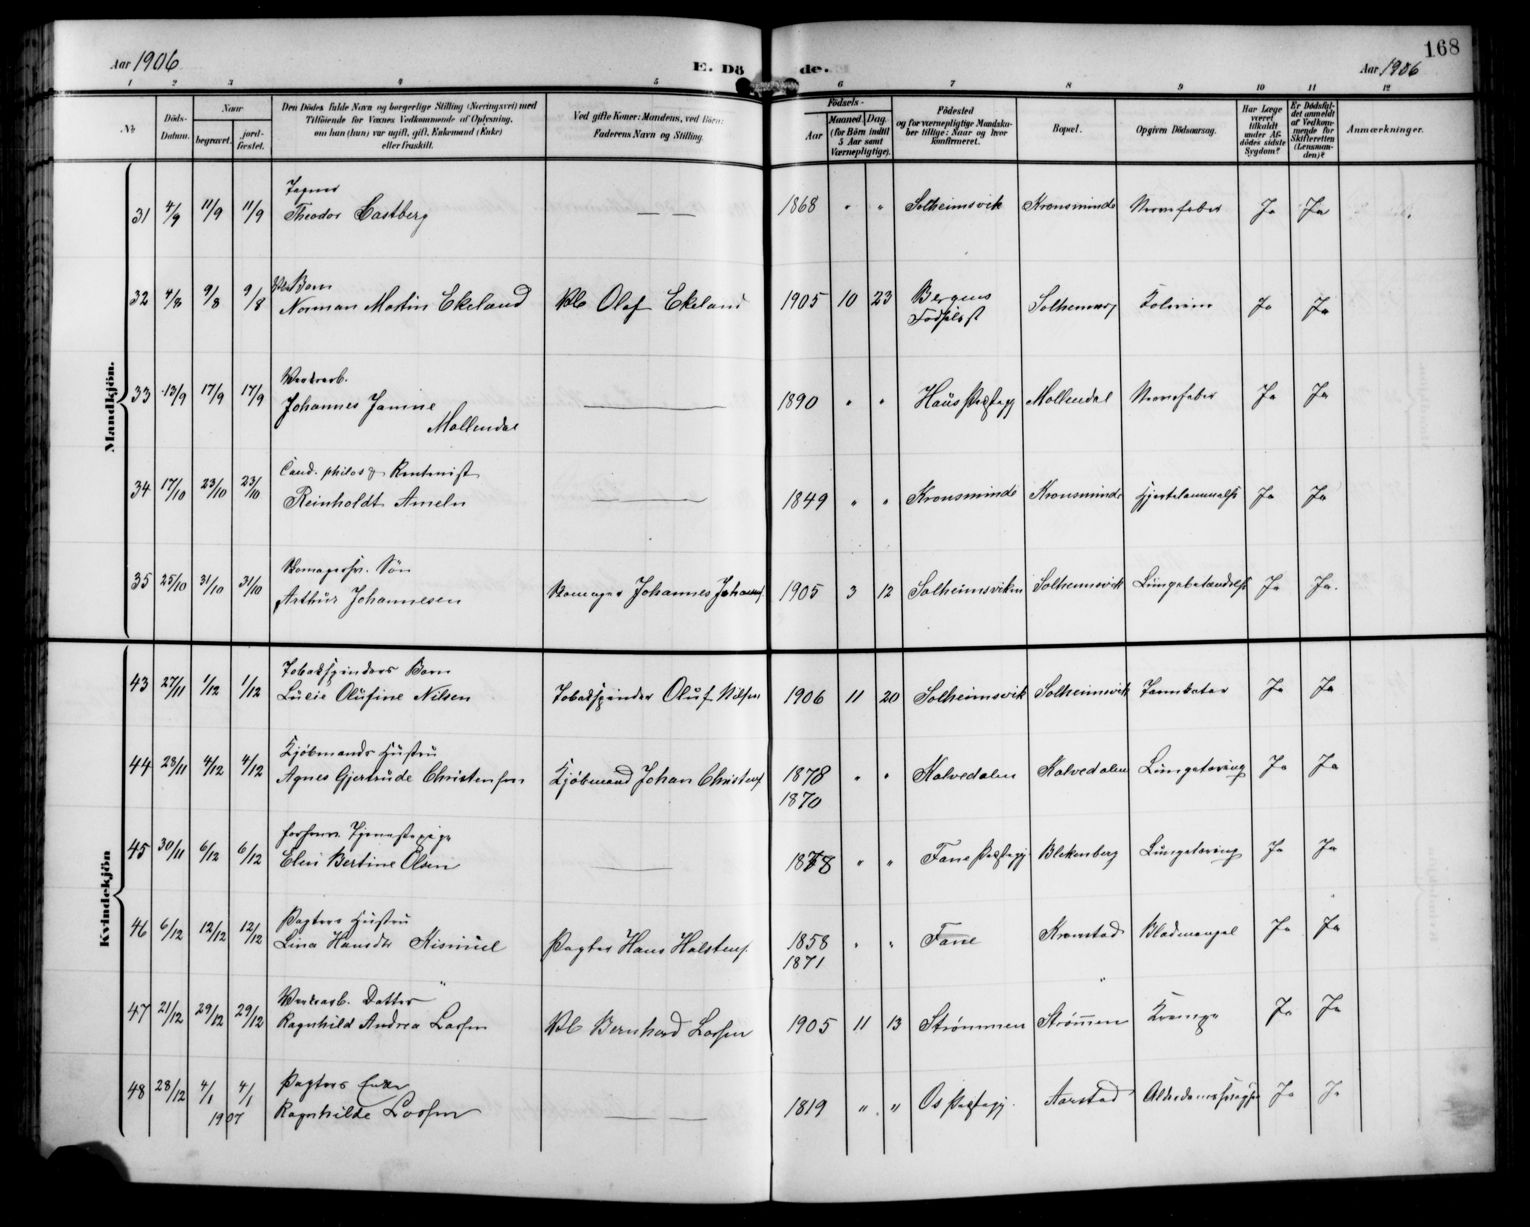 168
Aar 1906
E. Dö
de.
Aar 1906
1 2 3 4 5 6 7 8 9 10 11 12
No
Döds-Datum.
Naar
begravet.
jord-fæstet.
Den Dödes fulde Navn og borgerlige Stilling (Næringsvei) med
Tilföiende for Voxnes Vedkommende af Oplysning,
om han (hun) var ugift, gift, Enkemand (Enke)
eller fraskilt.
Ved gifte Koner: Mandens, ved Börn:
Faderens Navn og Stilling.
Födsels-
Aar
Maaned Dag
(for Börn indtil
5 Aar samt
Værnepligtige).
Födested
og for værnepligtige Mandska-
ber tillige: Naar og hvor
konfirmeret.
Bopæl.
Opgiven Dödsaarsag.
Har Læge
været
tilkaldt
under Af-
dödes sidste
Sygdom?
Er Dödsfal-
det anmeldt
af Vedkom-
mende for
Skifteretten
(Lensman-
den)?
Anmærkninger.
Mandkjön.
31 4/9 11/9 11/9 Theodor Castberg — — 1868 " " Solheimsvik Kronsminde Nervefeber Ja Ja
Barn
32 4/8 9/8 9/8 Norman Martin Ekeland Olaf Ekeland 1905 10 23 Bergens Fødselsst Kolerin Ja Ja
33 13/9 17/9 17/9 Johannes Janine 1890 " " Haus Møllendal Nervefeber Ja Ja
Møllendal
Cand. philos & Rentenist
34 17/10 23/10 23/10 Reinholdt Ameln 1849 " " Kronsminde Kronsminde Ja Ja
Søn
35 25/10 31/10 31/10 Arthur Johannesen Johannes 1905 3 12 Solheimsviken Solheimsvik Lungebetændelse Ja Ja.
Kvindekjön
Tobakspinders Barn
43 27/11 1/12 1/12 Lucie Olufine Nilsen Tobakspinder Oluf Nilsen 1906 11 20 Solheimsvik Solheimsvik Ja Ja
Kjøbmands Hustru
44 28/11 4/12 4/12 Agnes Gjertrude Christensen Kjøbmand Johan Christens. 1878 " " Kalvedalen Kalvedalen Lungetæring Ja Ja
1870
Tjenestepige
45 30/11 6/12 6/12 Elen Bertine Olsen 1878 " " Fane Præstegj Blekenberg Lungetæring Ja Ja
Pagters Hustru
46 6/12 12/12 12/12 Lina Hansdtr Kismul Pagter Hans Halstens. 1858 " " Fane Kronstad Blodmangel Ja Ja
1871
Datter
47 21/12 29/12 29/12 Ragnhild Andrea Larsen Bernhard Larsen 1905 11 13 Strømmen Strømmen Krampe Ja Ja
Pagters Enke
48 28/12 4/1 4/1 Ragnhilde Larsen 1819 " " Os Præstegj. Aarstad Ja Ja
1907